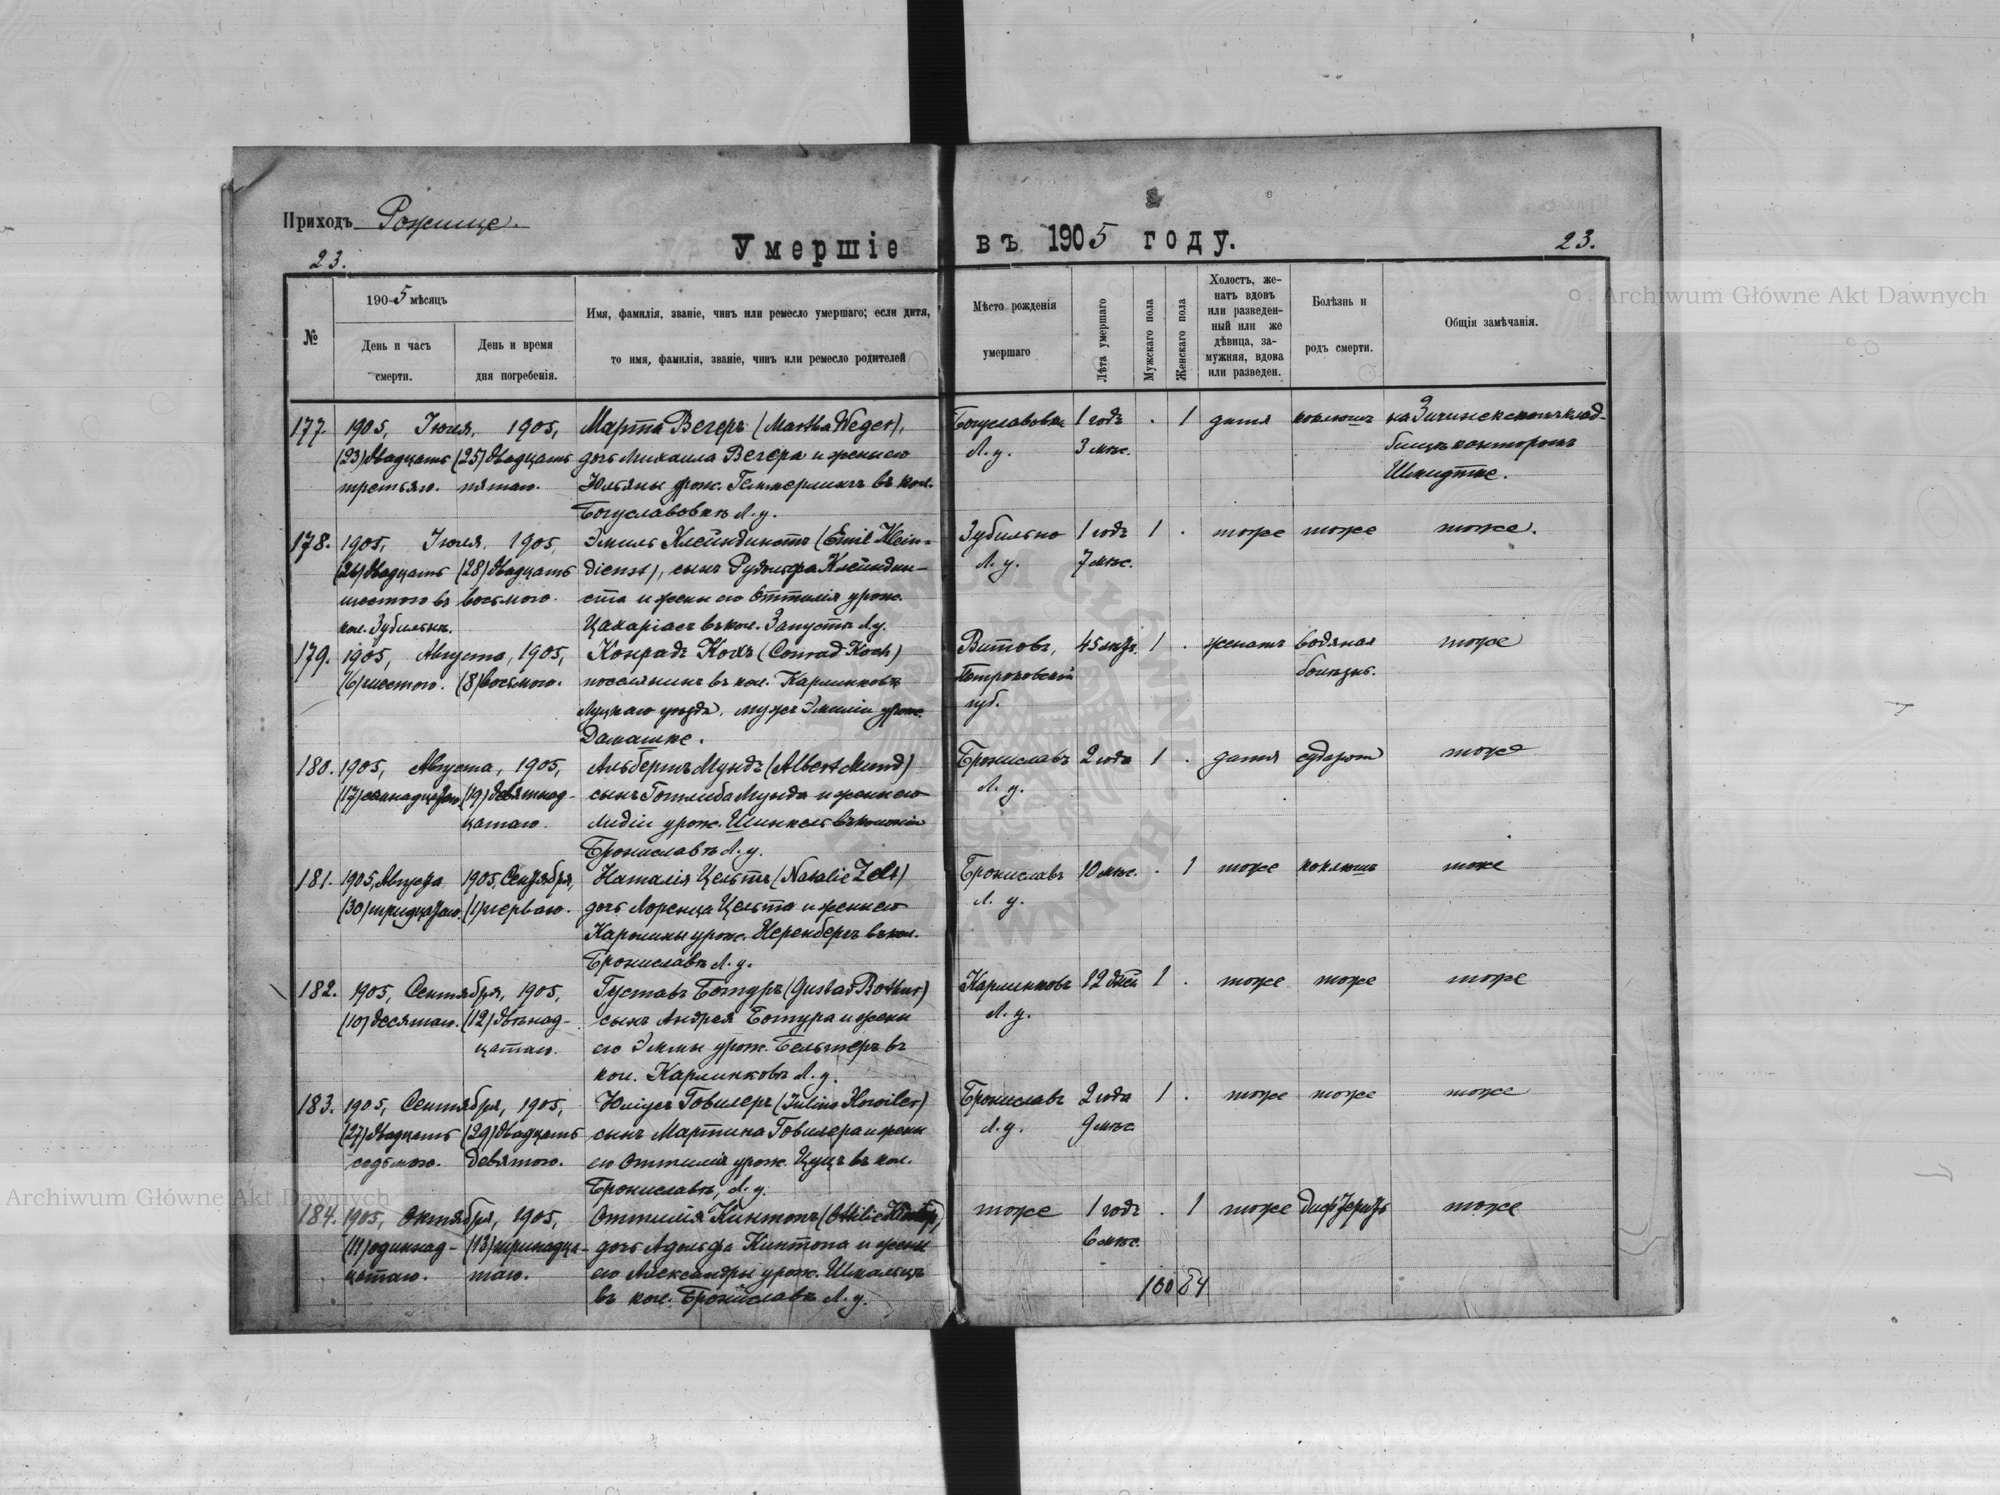 Приходъ Рожище.
Умершіе въ 1905 году.
23.
23.
№
1905 мѣсяцъ
День и часъ смерти.
День и время дня погребенія.
Имя, фамилія, званіе, чинъ или ремесло умершаго; если дитя,
то имя, фамилія, званіе, чинъ или ремесло родителей
Мѣсто рожденія умершаго
Лѣта умершаго
Мужскаго пола
Женскаго пола
Холостъ, же-
натъ вдовъ
или разведен-
ный или же
дѣвица, за-
мужняя, вдова
или разведен.
Болѣзнь и родъ смерти.
Общія замѣчанія.
177. 1905, Іюля, 1905, Марта Вегеръ (Martha Weger), Богуславовка 1 годъ . 1 дитя коклюшъ на кладбищѣ
(23) двадцать (25) двадцать дочь Михаила Вегера и жены его Л. у. 3 мѣс. канторомъ
третьяго. пятаго. Юльяны урож. Геммерлингъ въ кол. Шмидтке.
Богуславовкѣ Л. у.
178. 1905, Іюля, 1905, Эмиль Клейндинстъ (Emil Klein- Зубильно 1 годъ 1 . тоже тоже тоже.
(26) двадцать (28) двадцать dienst), сынъ Рудольфа Клейндин- Л. у. 7 мѣс.
шестого въ восьмого. ста и жены его Оттиліи урож.
кол. Зубильнѣ. Цахаріасъ въ кол. Запустъ Л. у.
179. 1905, Августа, 1905, Конрадъ Кохъ (Conrad Koch) Витовъ, 45 лѣтъ 1 . женатъ водяная тоже
(6) шестого. (8) восьмого. поселянинъ въ кол. Кармлинковкѣ Петроковской болѣзнь.
Луцкаго уѣзда, мужъ Эмиліи урож. губ.
Дамашке.
180. 1905, Августа, 1905, Альбертъ Мундъ (Albert Mund) Брониславъ 2 года 1 . дитя судороги тоже
(17) семнадцатаго (19) девятнад- сынъ Готлиба Мунда и жены его Л. у.
цатаго. Лидіи урож. Шинкель въ колоніи
Брониславѣ Л. у.
181. 1905, Августа 1905, Сентября, Наталія Цельтъ (Natalie Zelt) Брониславъ 10 мѣс. . 1 тоже коклюшъ тоже
(30) тридцатаго. (1) перваго. дочь Лоренца Цельта и жены его Л. у.
Каролины урож. Неренбергъ въ кол.
Брониславѣ Л. у.
182. 1905, Сентября, 1905, Густавъ Ботуръ (Gustav Bothur) Кармлинковъ 12 дней 1 . тоже тоже тоже
(10) десятаго. (12) двѣнад- сынъ Андрея Ботура и жены Л. у.
цатаго. его Эммы урож. Бельтеръ въ
кол. Кармлинковѣ Л. у.
183. 1905, Сентября, 1905, Юліусъ Говилеръ (Julius Howiler) Брониславъ 2 года 1 . тоже тоже тоже
(27) двадцать (29) двадцать сынъ Мартина Говилера и жены Л. у. 9 мѣс.
седьмого. девятого. его Оттиліи урож. Цуцъ въ кол.
Брониславѣ, Л. у.
184. 1905, Октября, 1905, Оттилія Кинтопъ (Ottilie тоже 1 годъ . 1 тоже дифтеритъ тоже
(11) одиннад- (13) тринадца- дочь Адольфа Кинтопа и жены 6 мѣс.
цатаго. таго. его Александры урож. Шмальцъ
въ кол. Брониславѣ Л. у. 100 84
Archiwum Główne Akt Dawnych
Archiwum Główne Akt Dawnych